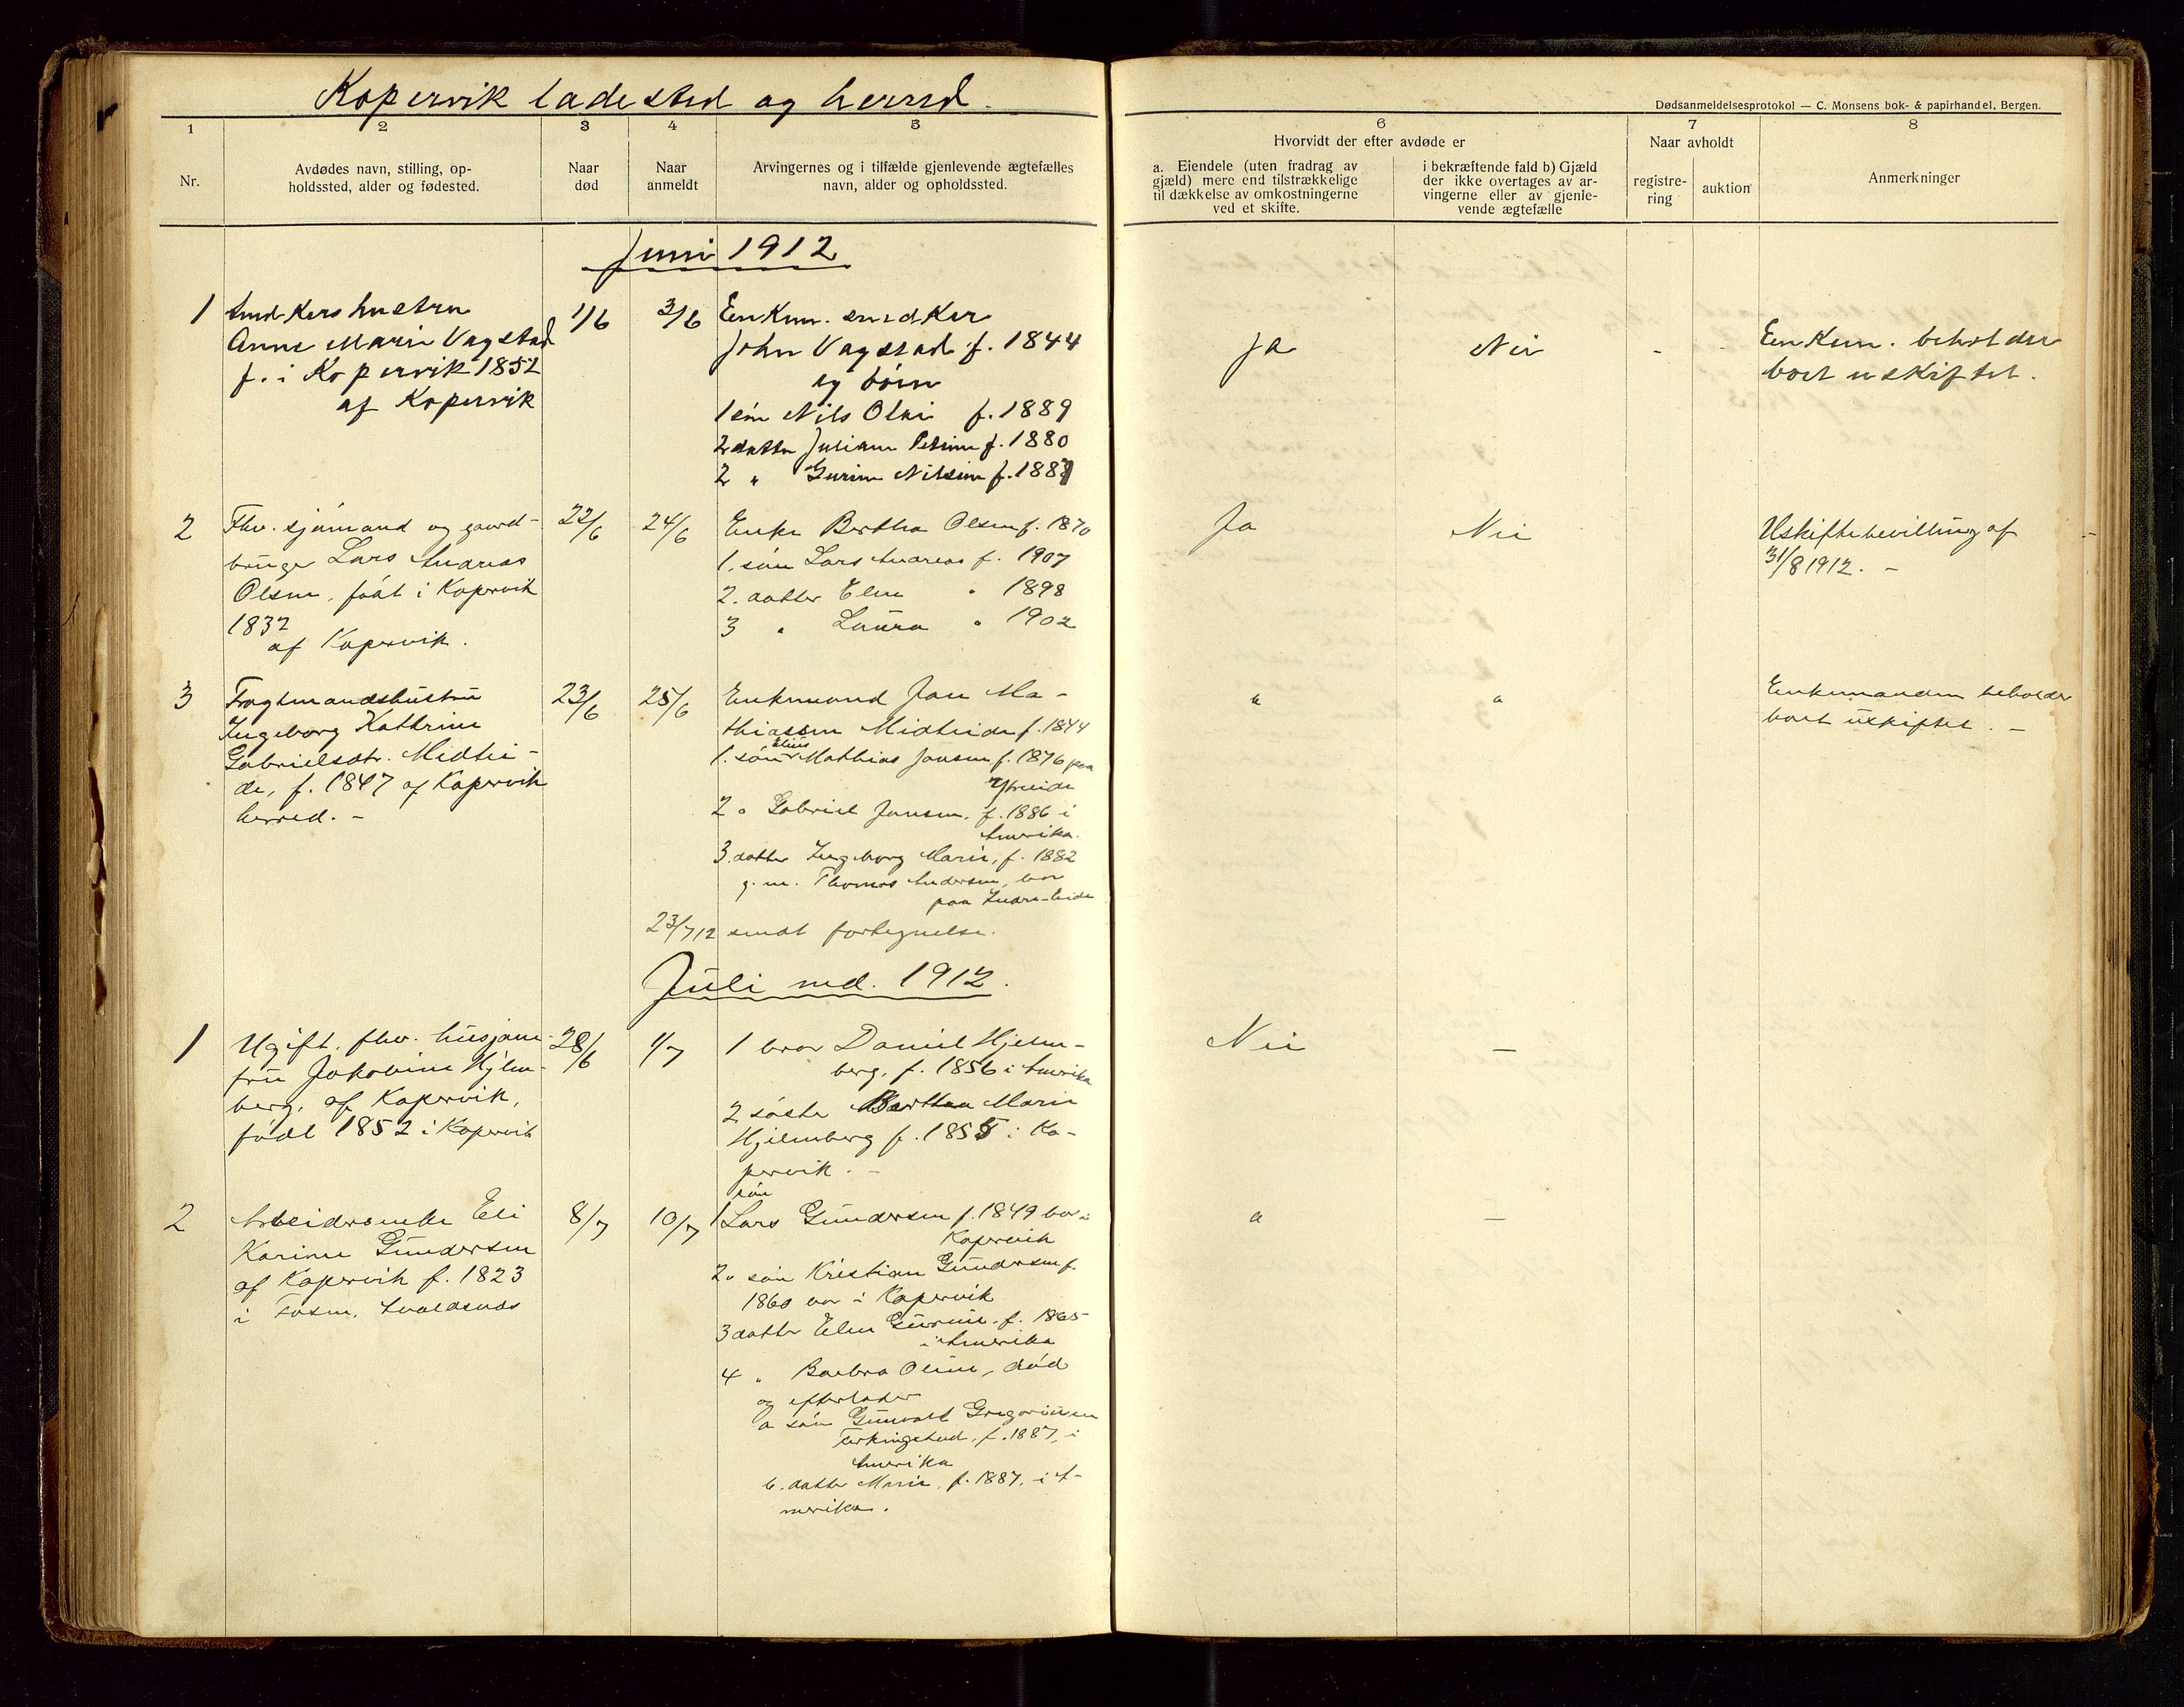 Kopervik ladested og herred.
Dødsanmeldelsesprotokol — C. Monsens bok- & papirhandel, Bergen.
1
2
3
4
5
6
7
8
Nr.
Avdødes navn, stilling, op-
holdssted, alder og fødested.
Naar
død
Naar
anmeldt
Arvingernes og i tilfælde gjenlevende ægtefælles
navn, alder og opholdssted.
Hvorvidt der efter avdøde er
a. Eiendele (uten fradrag av
gjæld) mere end tilstrækkelige
til dækkelse av omkostningerne
ved et skifte.
i bekræftende fald b) Gjæld
der ikke overtages av ar-
vingerne eller av gjenle-
vende ægtefælle
Naar avholdt
registre-
ring
auktion
Anmerkninger
Juni 1912
1
Snedkershustru
Anne Marie Vagstad
f. i Kopervik 1852
af Kopervik
1/6
3/6
Enkem. snedker
John Vagstad f. 1844
og børn
1 søn Nils Olai f. 1889
2 datter Juliane Petrine f. 1880
2 " Gurine Nilsine f. 1887
Ja
Nei
-
Enkem. beholder
boet uskiftet.
2
Fhv. sjømand og gaard-
bruger Lars Andreas
Olsen, født i Kopervik
1832
af Kopervik.
22/6
24/6
Enke Bertha Olsen f. 1870
1. søn Lars Andreas f. 1907
2. datter Elen " 1898
3 " Laura " 1902
Ja
Nei
Uskiftebevilling af
31/8 1912. -
3
Fragtmandshustru
Ingeborg Kathrine
Gabrielsdtr. Midtei-
de, f. 1847 af Kopervik
herred. -
23/6
25/6
Enkemand Jan Ma-
thiassen Midteide f. 1844
Elius
1. søn Mathias Jansen f. 1876 paa
Ytreeide
2 " Gabriel Jansen, f. 1886 i
Amerika.
3. datter Ingeborg Marie, f. 1882
g. m. Thomas Andersen, bor
paa Indre-Eide
23/7 12 sendt fortegnelse.
"
"
Enkemanden beholder
boet uskiftet. -
Juli md. 1912.
1
Ugift. fhv. husjom-
fru Jakobine Hjelm-
berg, af Kopervik,
født 1852 i Kopervik
28/6
1/7
1 bror Daniel Hjelm-
berg, f. 1856 i Amerika
2 søster Bertha Marie
Hjelmberg f. 1855 i Ko-
pervik. -
Nei
-
2
Arbeidsenke Eli
Karine Gundersen
af Kopervik f. 1823
i Fosen, Avaldsnes
8/7
10/7
søn
1 Lars Gundersen f. 1849 bor i
Kopervik
2. søn Kristian Gundersen f.
1860 bor i Kopervik
3 datter Elen Gurine, f. 1865
i Amerika
4 " Barbra Oline, død
og efterlader
a søn Gunvald Gregoriusen
Ferkingstad, f. 1887, i
Amerika
b. datter Marie, f. 1887, i A-
merika.
"
-